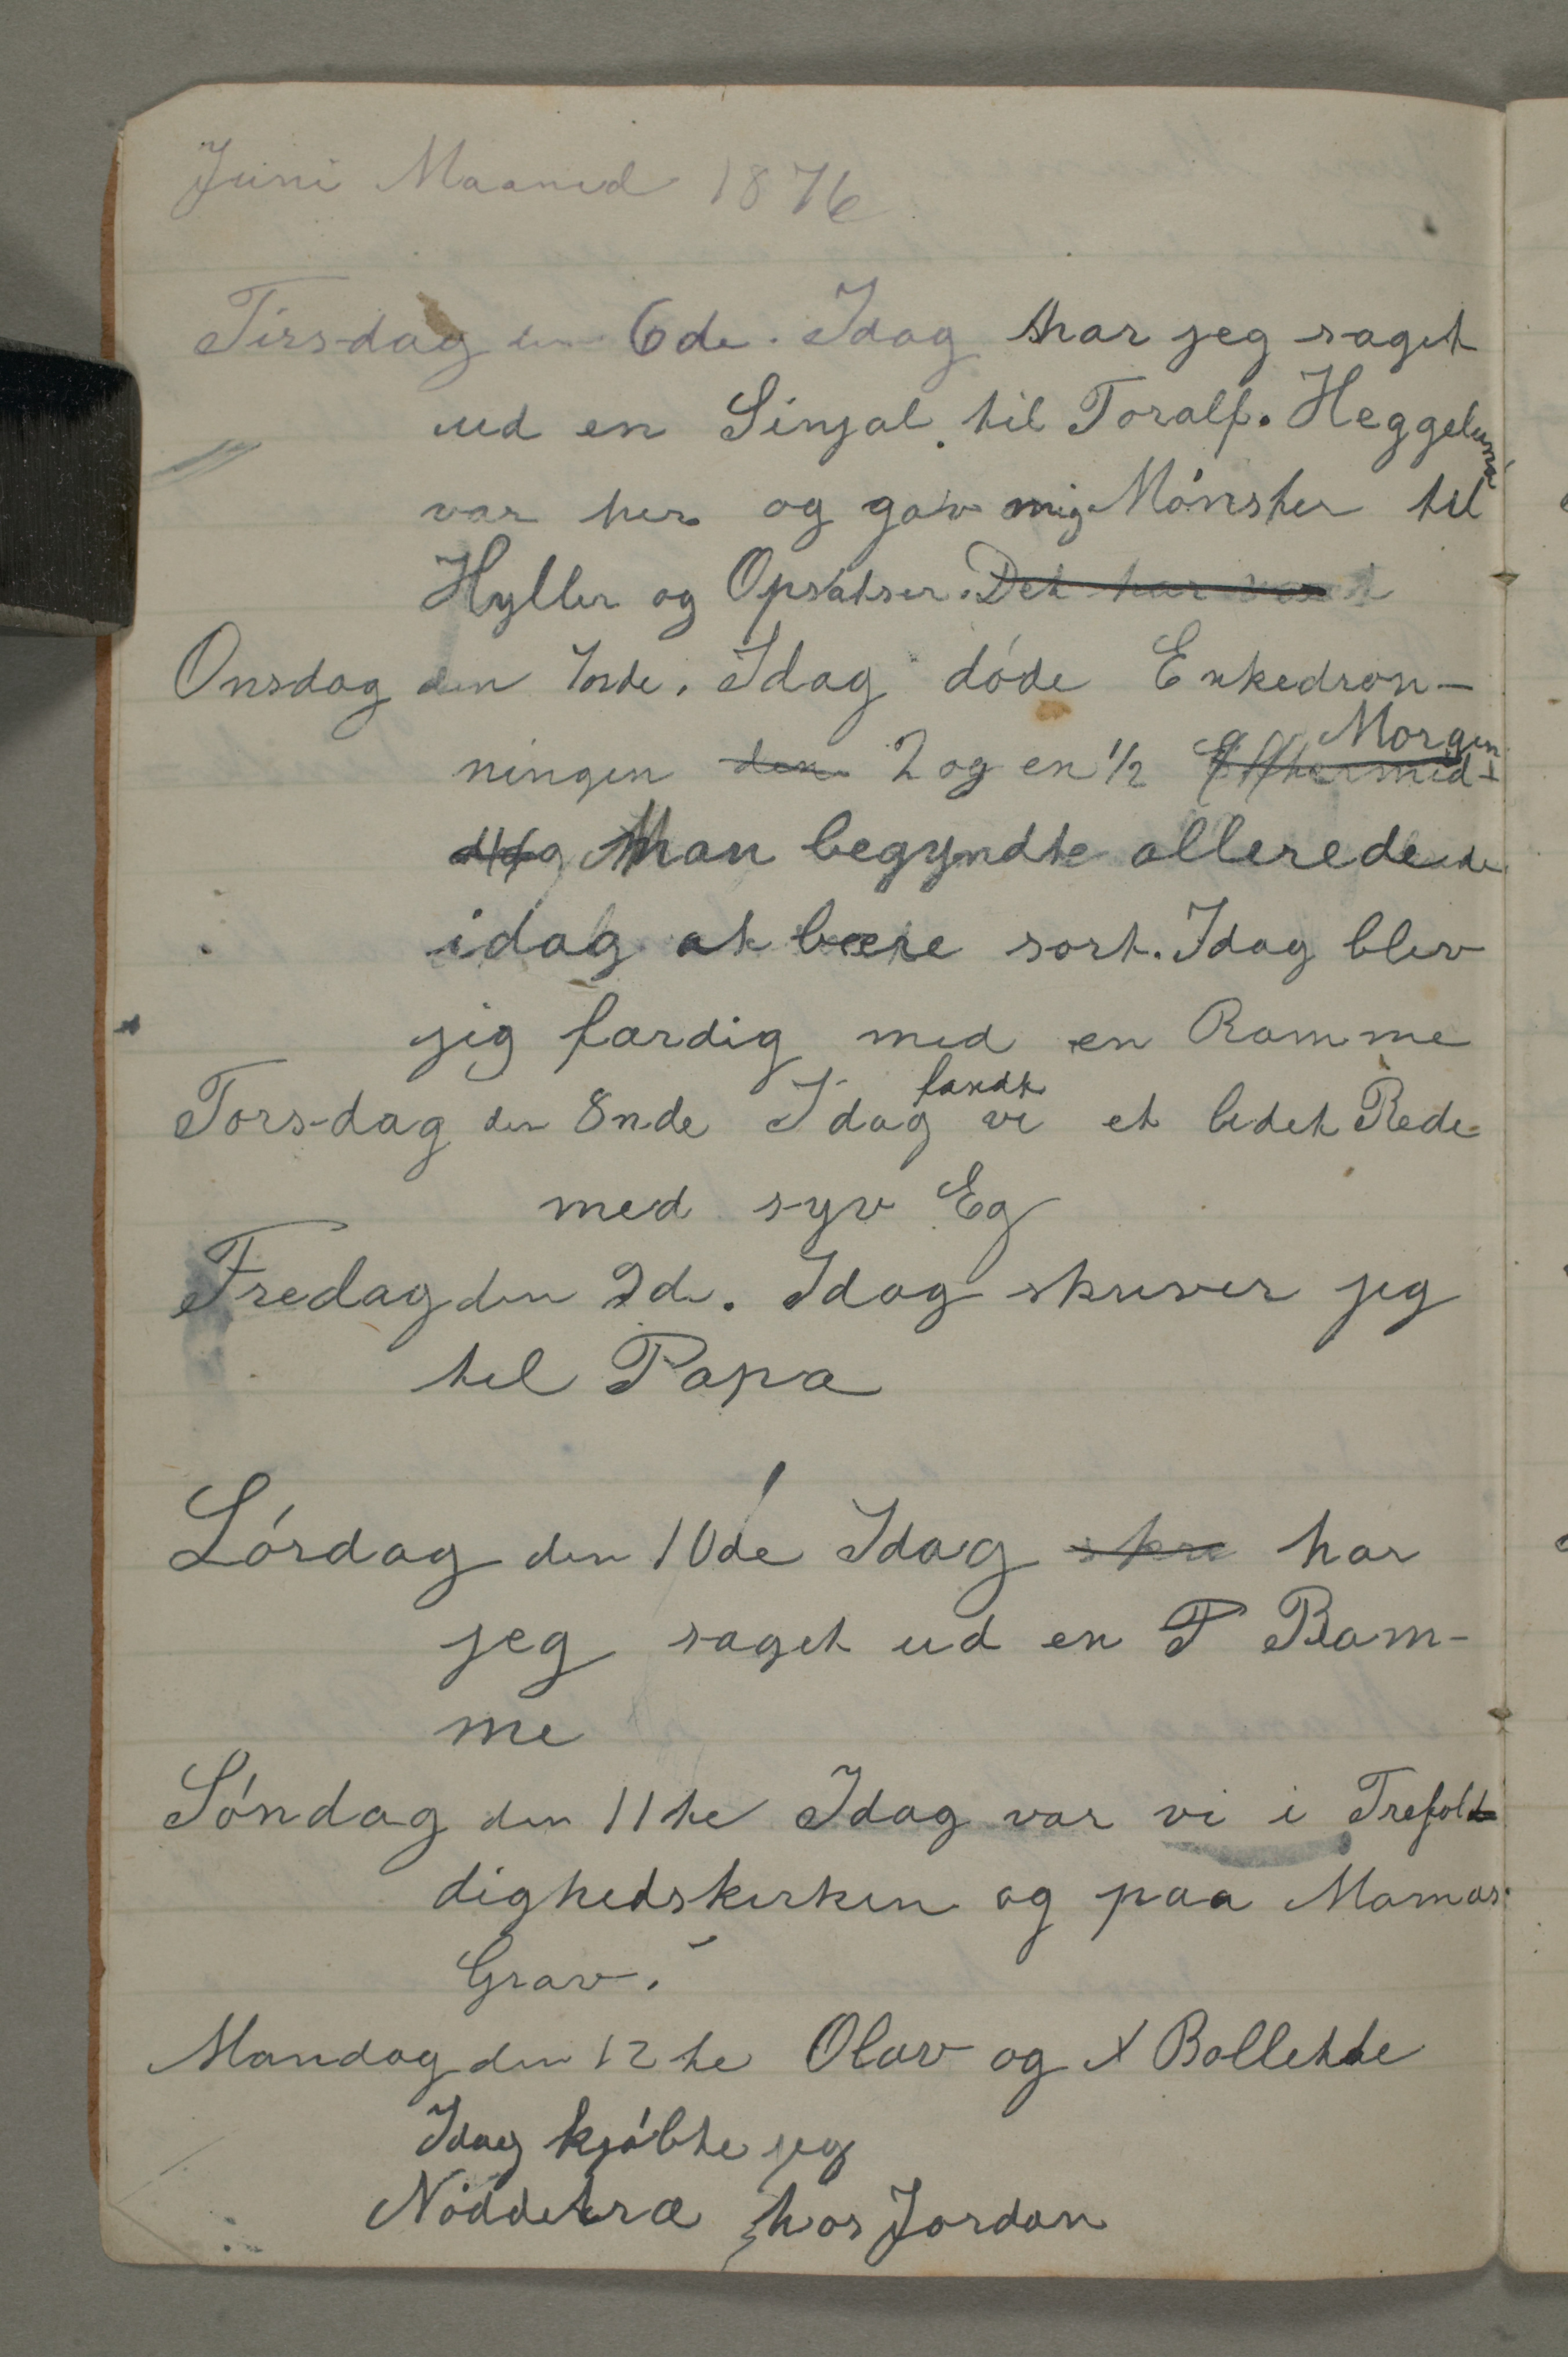 Juni Maaned 1876
Tirsdag den 6de. Idag har jeg saget
ud en Sinjal. til Toralf. Heggelund
var her og gav mig Mónster til
Hyller og Opsatser. Det har været
Onsdag den 7nde. Idag dóde Enkedron-
ningen den 2 og en 1/2 Efthermid- Morgen
dag Man begyndte allerede
idag at bære sort. Idag blev
jeg færdig med en Ramme
Torsdag den 8nde Idag fandt vi et lidet Rede
med syv Eg
Fredag den 9de. Idag skriver jeg
til Papa
Lórdag den 10de Idag skre har
jeg saget ud en P Ram-
me
Sóndag den 11te Idag var vi i Trefol
dighedskirken og paa Mamas
Grav.
Mandag den 12te Olav og Bollette
Idag kjóbte jeg
Nóddetræ hos Jordan